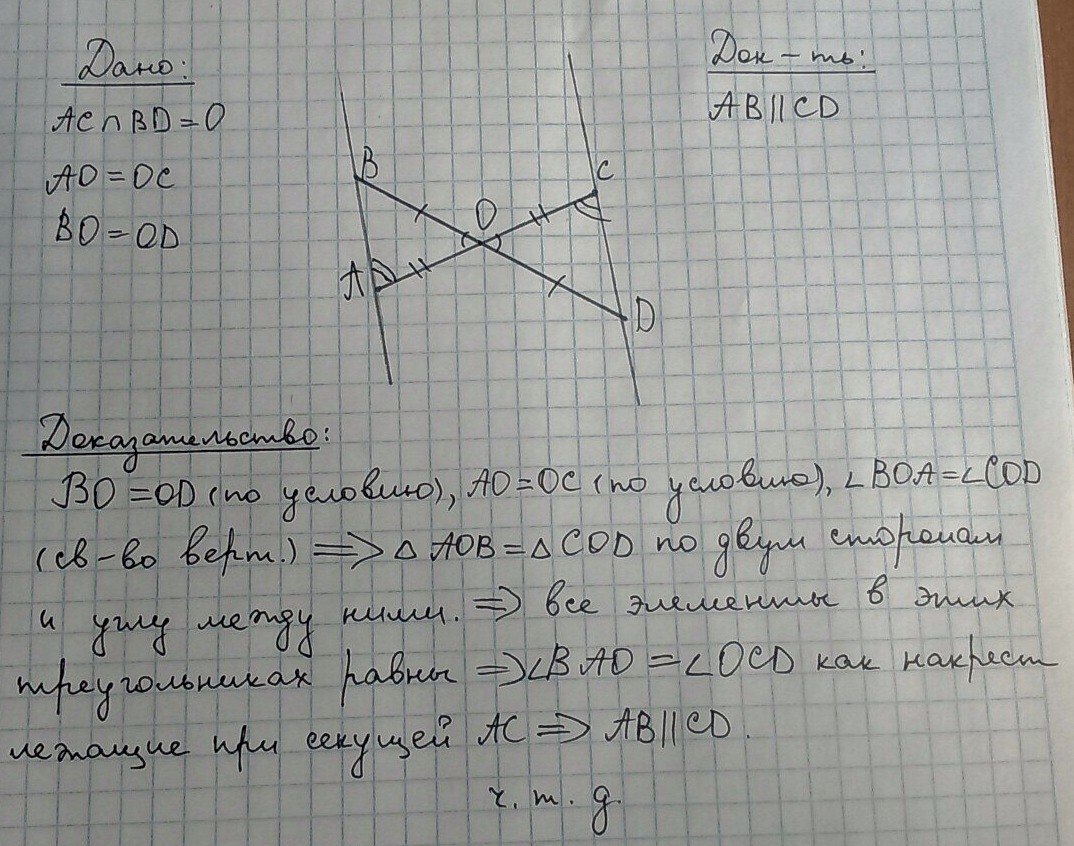 Дано:
AC∩BD=O
AO=OC
BO=OD
B
C
O
A
D
Док-ть:
AB||CD
Доказательство:
BO=OD (по условию), AO=OC (по условию), ∠BOA=∠COD
(св-во верт.) => △ AOB=△ COD по двум сторонам
и углу между ними. => все элементы в этих
треугольниках равны => ∠BAO=∠OCD как накрест
лежащие при секущей AC => AB||CD.
ч. т. д.